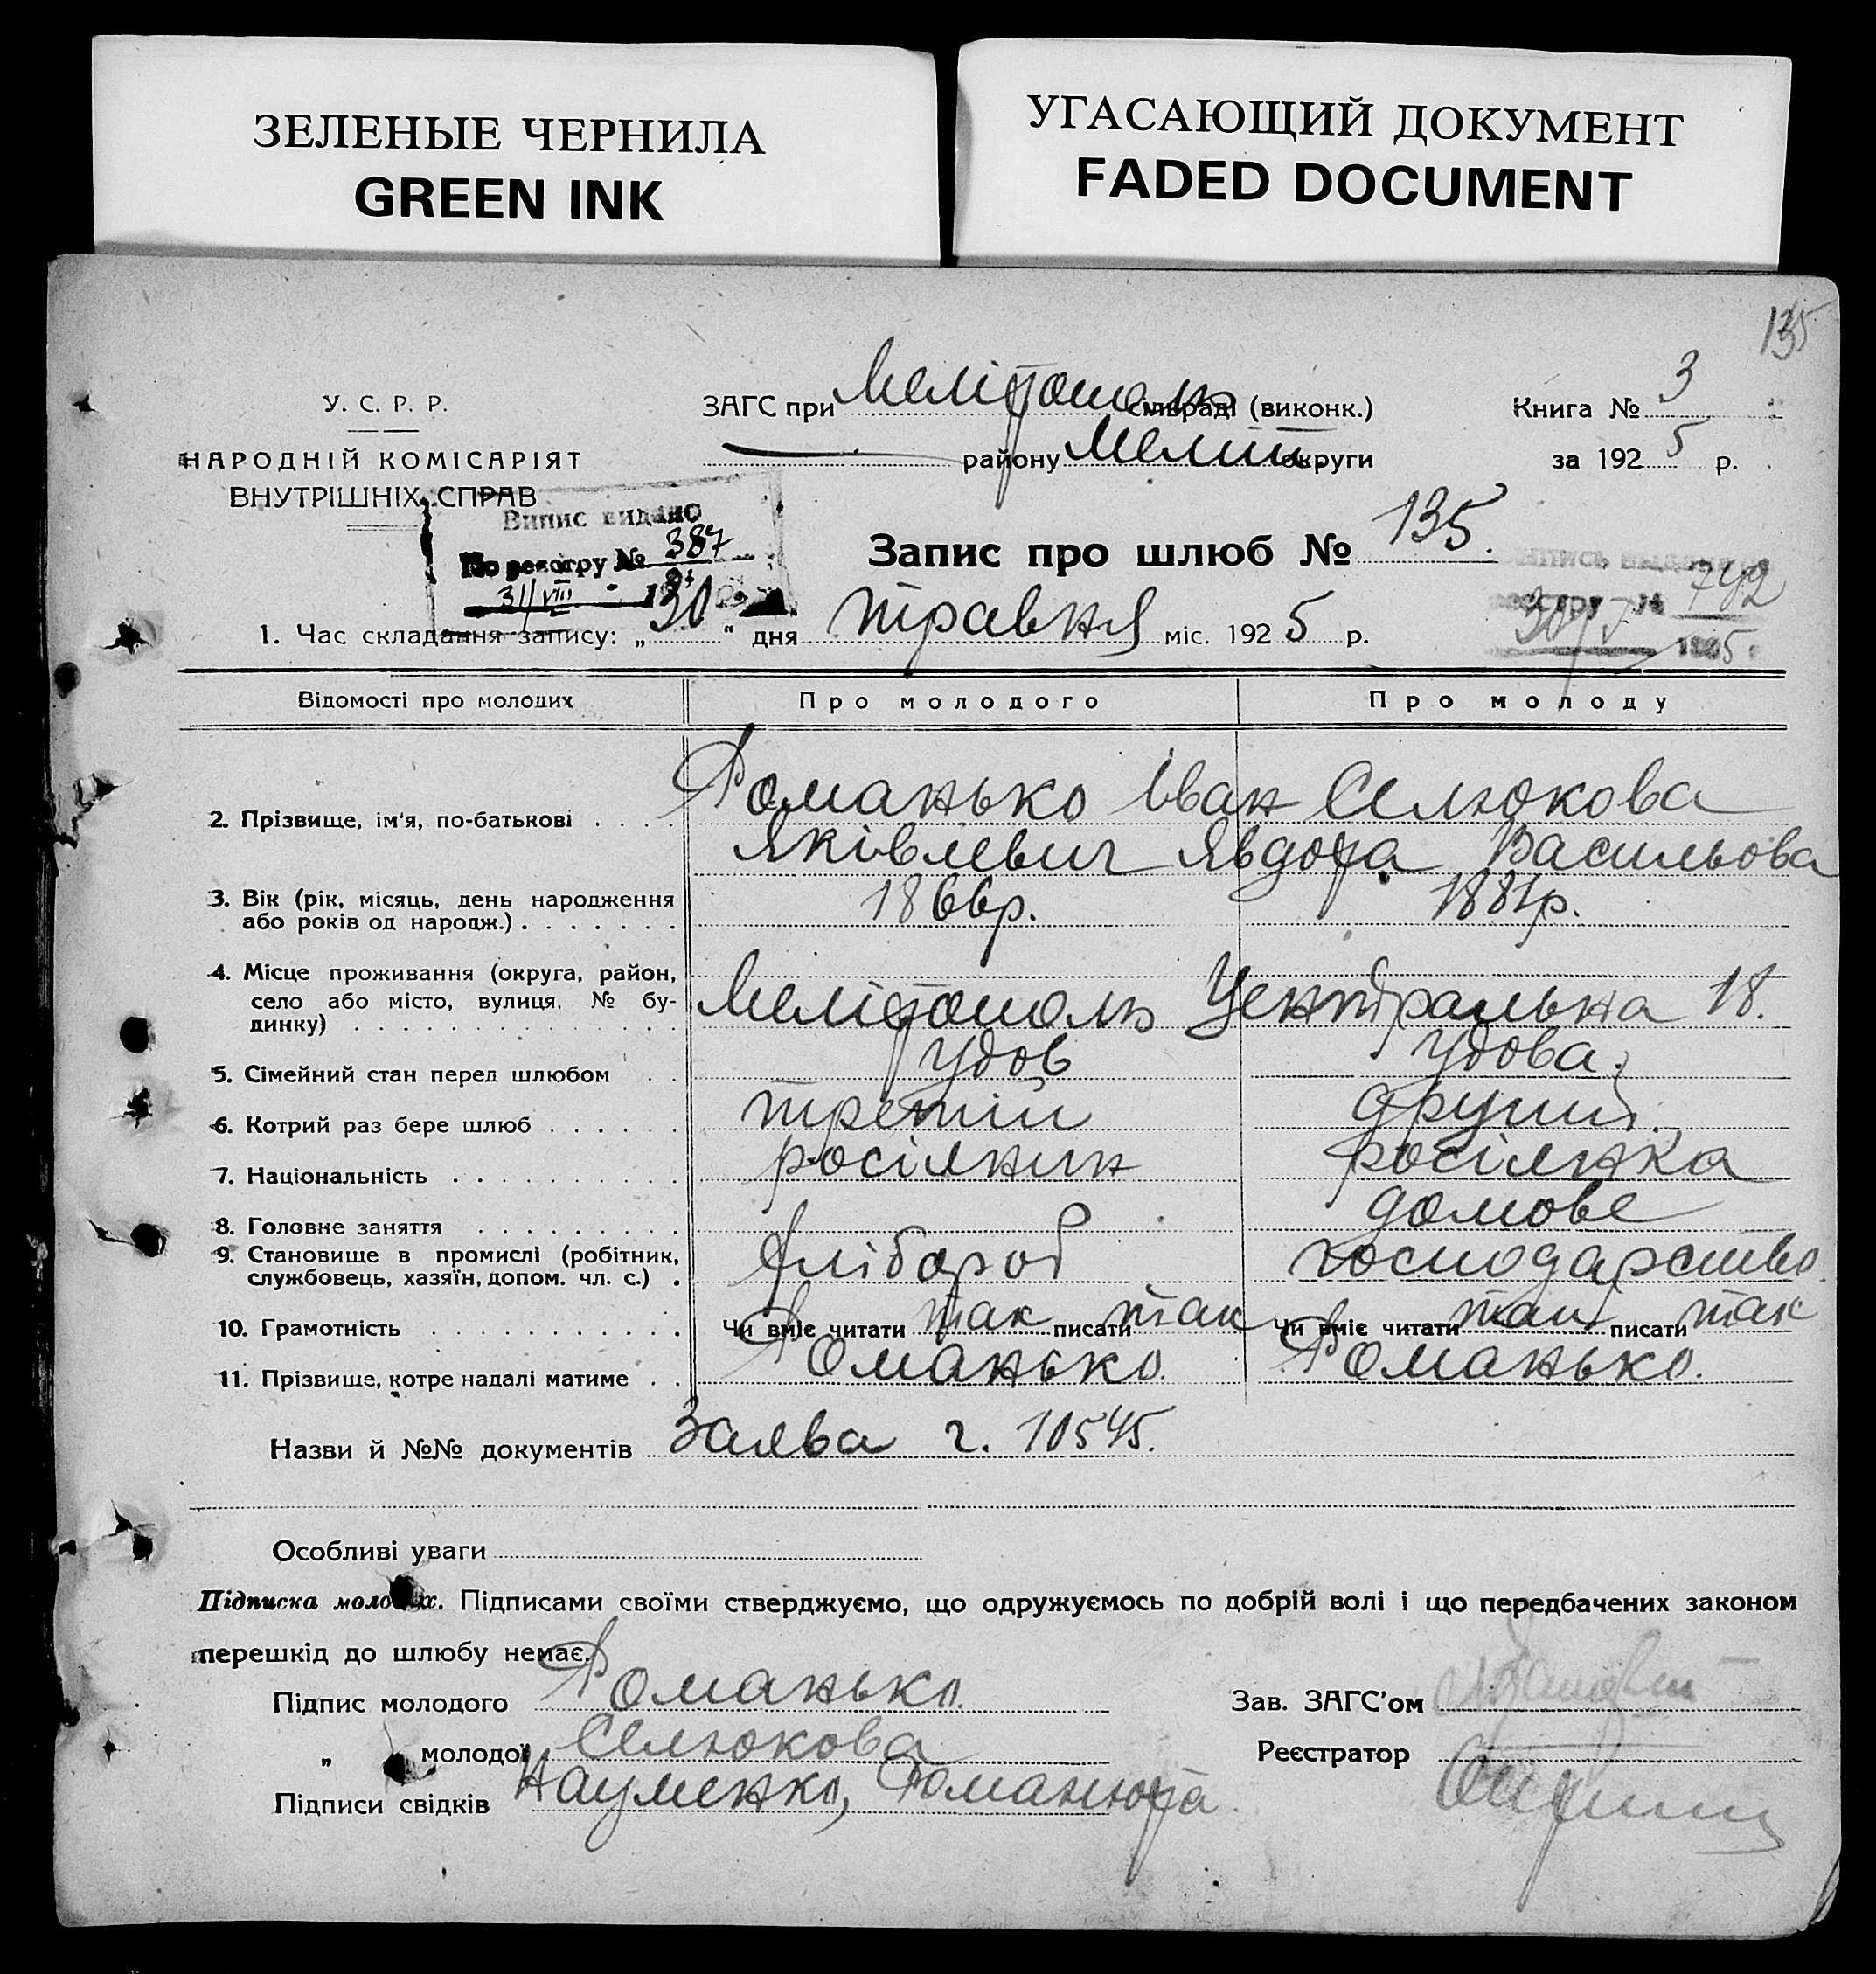 ЗЕЛЕНЫЕ ЧЕРНИЛА
GREEN INK
УГАСАЮЩИЙ ДОКУМЕНТ
FADED DOCUMENT
135
У. С. Р. Р.
НАРОДНІЙ КОМІСАРІЯТ
ВНУТРІШНІХ СПРАВ
ЗАГС при Мелітополь сільраді (виконк.)
району Меліт. округи
Книга № 3
за 1925 р.
Випис видано
По реєстру № 387
31/VIII
Запис про шлюб № 135.
742
1. Час складання запису: „30" дня травня міс. 1925 р.
Відомості про молодих Про молодого Про молоду
2. Прізвище, ім'я, по-батькові . . . . Романько Іван Селюкова
Яківлевич Явдоха Васильова
3. Вік (рік, місяць, день народження 1866р. 1881р.
або років од народж.) . . . . . . .
4. Місце проживання (округа, район,
село або місто, вулиця, № бу- Мелітополь Центральна 18.
динку) . . . . . . . . . . . . . .
5. Сімейний стан перед шлюбом . . удов удова.
6. Котрий раз бере шлюб . . . . . . третій другий.
7. Національність . . . . . . . . . . росіянин росіянка
8. Головне заняття . . . . . . . . . домове
9. Становище в промислі (робітник, хлібороб господарство
службовець, хазяїн, допом. чл. с.) .
10. Грамотність . . . . . . . . . . . Чи вміє читати так писати так Чи вміє читати так писати так
11. Прізвище, котре надалі матиме . . Романько. Романько.
Назви й №№ документів Заява г. 10545.
Особливі уваги
Підписка молодих. Підписами своїми стверджуємо, що одружуємось по добрій волі і що передбачених законом
перешкід до шлюбу немає.
Підпис молодого Романько. Зав. ЗАГС'ом
„ молодої Селюкова Реєстратор
Підписи свідків Науменко,